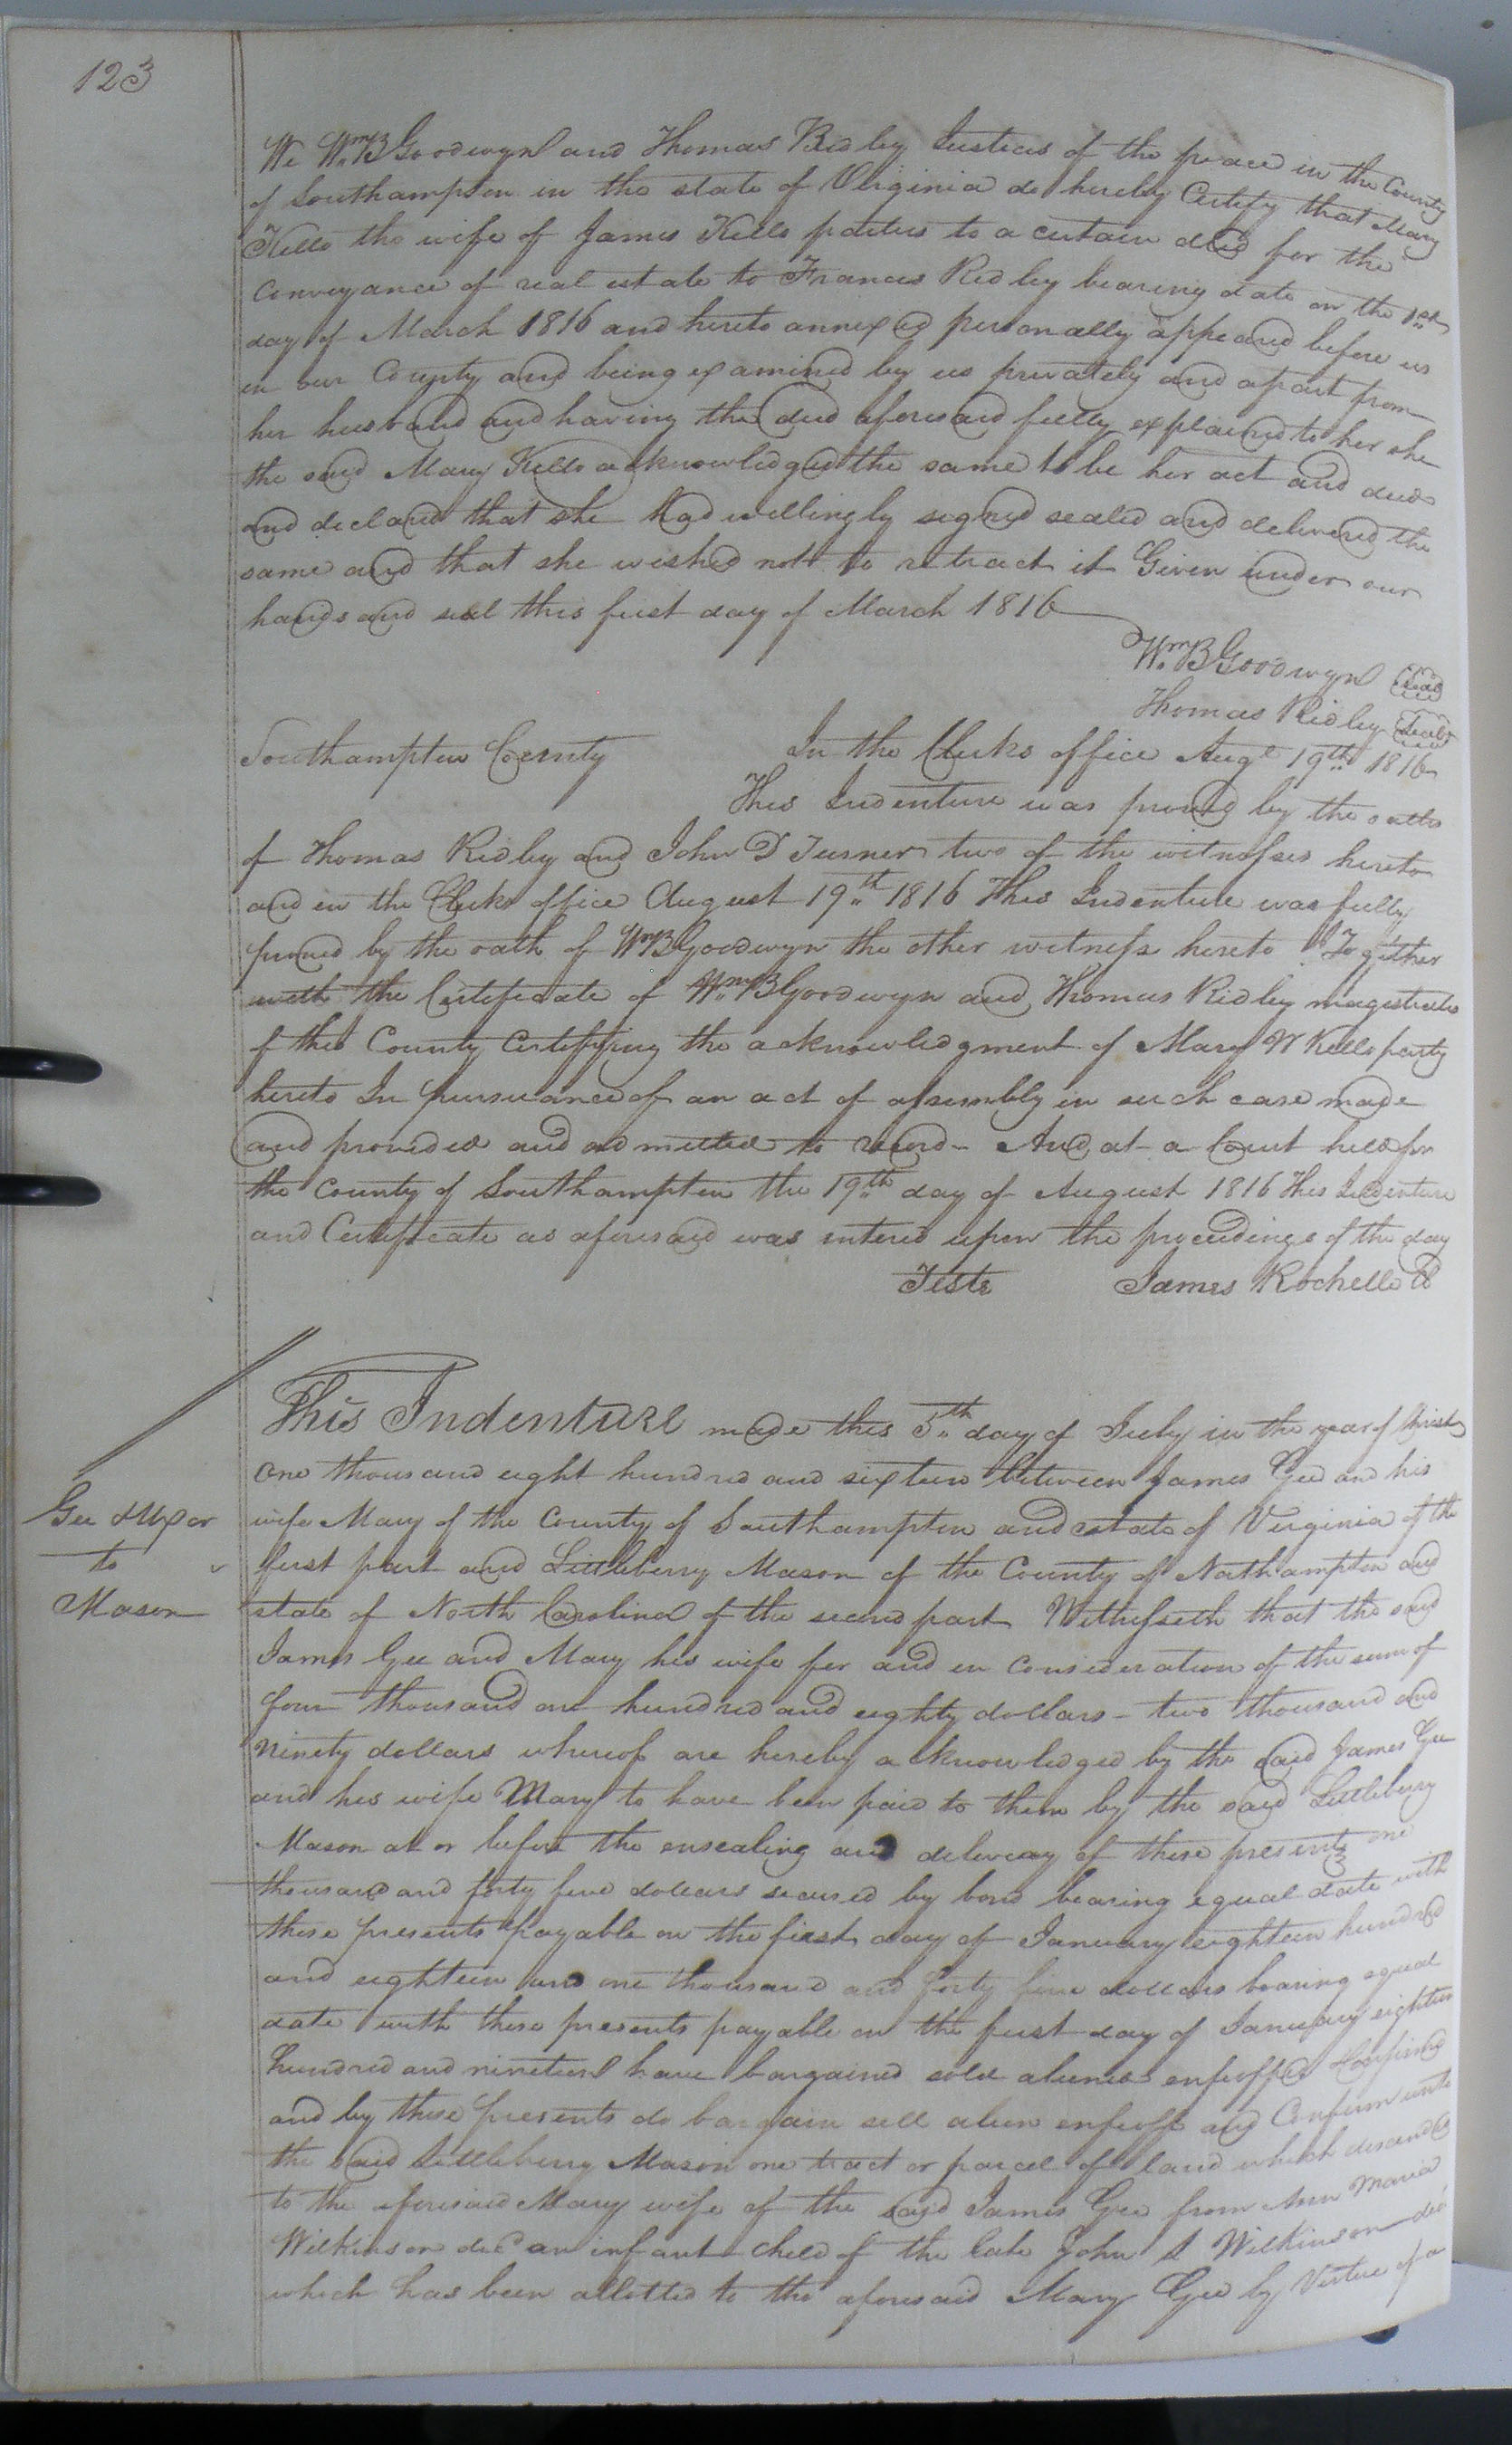 123
We Wm B Goodwyn and Thomas Ridley Justices of the peace in the County
of Southampton in the state of Virginia do hereby Certify that Mary
Kello the wife of James Kello parties to a certain deed for the
Conveyance of real estate to Francis Ridley bearing date on the 1st
day of March 1816 and hereto annexed personally appeared before us
in our County and being examined by us privately and apart from
her husband and having the deed aforesaid fully explained to her she
the said Mary Kello acknowledged the same to be her act and deed
and declared that she had willingly signed sealed and delivered the
same and that she wished not to retract it Given under our
hands and seal this first day of March 1816
Wm B Goodwyn Seal
Thomas Ridley Seal
Southampton County In the Clerks office Augt 19th 1816
This Indenture was proved by the oaths
of Thomas Ridley and John D Turner two of the witnesses hereto
and in the Clerks office August 19th 1816 This Indenture was fully
proved by the oath of Wm B Goodwyn the other witness hereto Together
with the Certificate of Wm B Goodwyn and Thomas Ridley magistrates
of this County Certifying the acknowledgment of Mary W Kello party
hereto In pursuance of an act of assembly in such case made
and provided and admitted to record - And at a Court held for
the County of Southampton the 19th day of August 1816 This Indenture
and Certificate as aforesaid was entered upon the proceedings of the day
Teste James Rochelle Cl
This Indenture made this 5th day of July in the year of Christ
one thousand eight hundred and sixteen between James Gee and his
Gee & Uxor
to
Mason
wife Mary of the County of Southampton and state of Virginia of the
first part and Littleberry Mason of the County of Northampton and
state of North Carolina of the second part Witnesseth that the said
James Gee and Mary his wife for and in Consideration of the sum of
four thousand one hundred and eighty dollars - two thousand and
Ninety dollars whereof are hereby acknowledged by the said James Gee
and his wife Mary to have been paid to them by the said Littlebury
Mason at or before the ensealing and delivery of these presents one
thousand and forty five dollars secured by bond bearing equal date with
these presents payable on the first day of January eighteen hundred
and eighteen and one thousand and forty five dollars bearing equal
date with these presents payable on the first day of January eighteen
hundred and nineteen have bargained sold aliened enfeoffed & Confirmed
and by these presents do bargain sell alien enfeoff and Confirm unto
the said Littleberry Mason one tract or parcel of land which descended
to the aforesaid Mary wife of the said James Gee from Ann Maria
Wilkinson decd an infant child of the late John S Wilkinson decd
which has been allotted to the aforesaid Mary Gee by Virtue of a